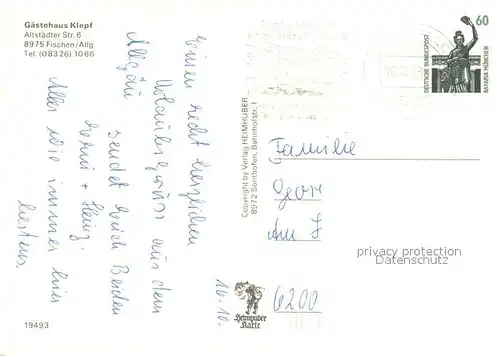 Gästehaus Klepf
Altstädter Str. 6
8975 Fischen/Allg
Tel. (08326) 1066
Einen recht herzlichen
Urlaubsgruss aus dem
Allgäu
sendet Euch Beiden
+ Heinz.
Alles wie immer hier
bestens.
16.10.
19493
Copyright by Verlag HEIMHUBER
8972 Sonthofen, Bahnhofstr. 1
Heimhuber
Karte
60
DEUTSCHE BUNDESPOST
BAVARIA MÜNCHEN
Familie
Geor
Am I
6200
privacy protection
Datenschutz